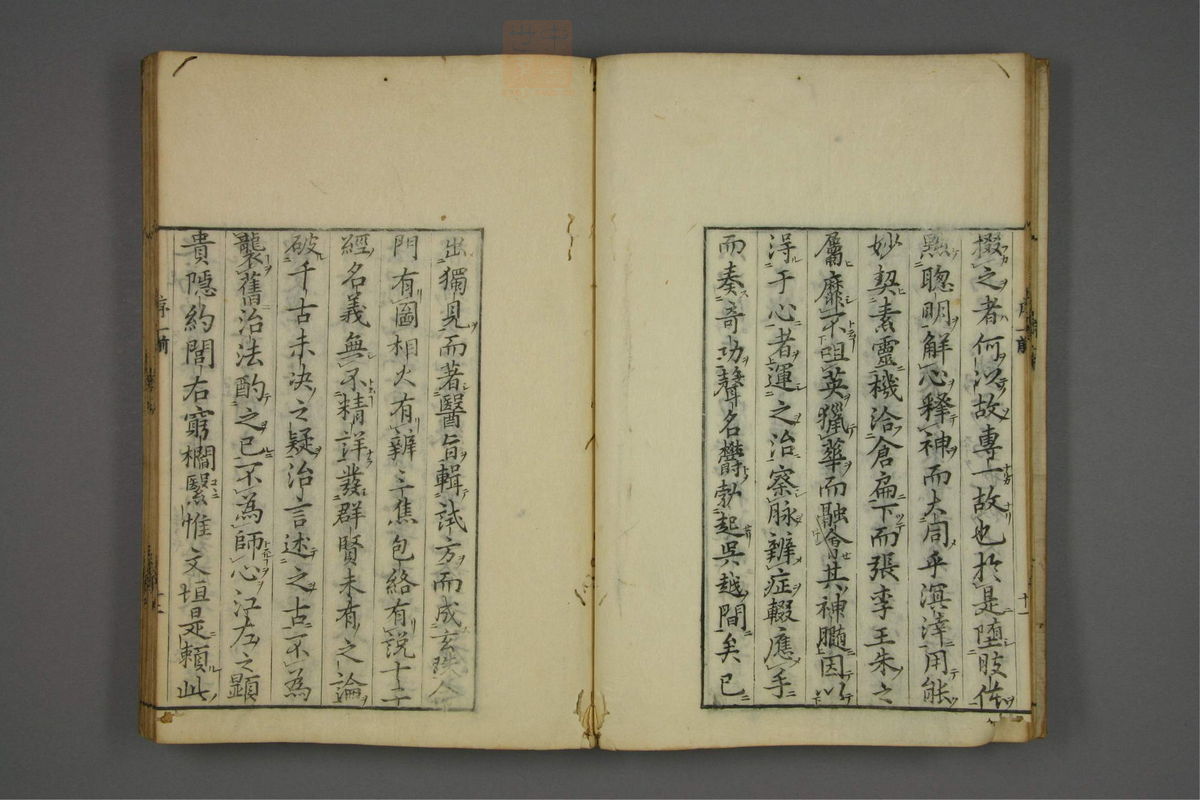 掇之者何以故專一故也於是墮肢体
黜聰明解心釋神而大同乎溟涬用能
妙契素靈機洽倉扁下而張李王朱之
屬靡不咀英獵華而融會其神髓因以
淂于心者運之治察脉辨症輟應手
而奏竒功聲名欝勃起呉越間矣已
出獨見而著醫旨輯試方而成玄珠命
門有圖相火有辨三焦包絡有說十二
經名義無不精詳發群賢未有之論
破千古未决之疑治言述之古不為
襲舊治法酌之已不為師心江左之顕
貴隱約閭右窮櫩緊惟文垣是頼此